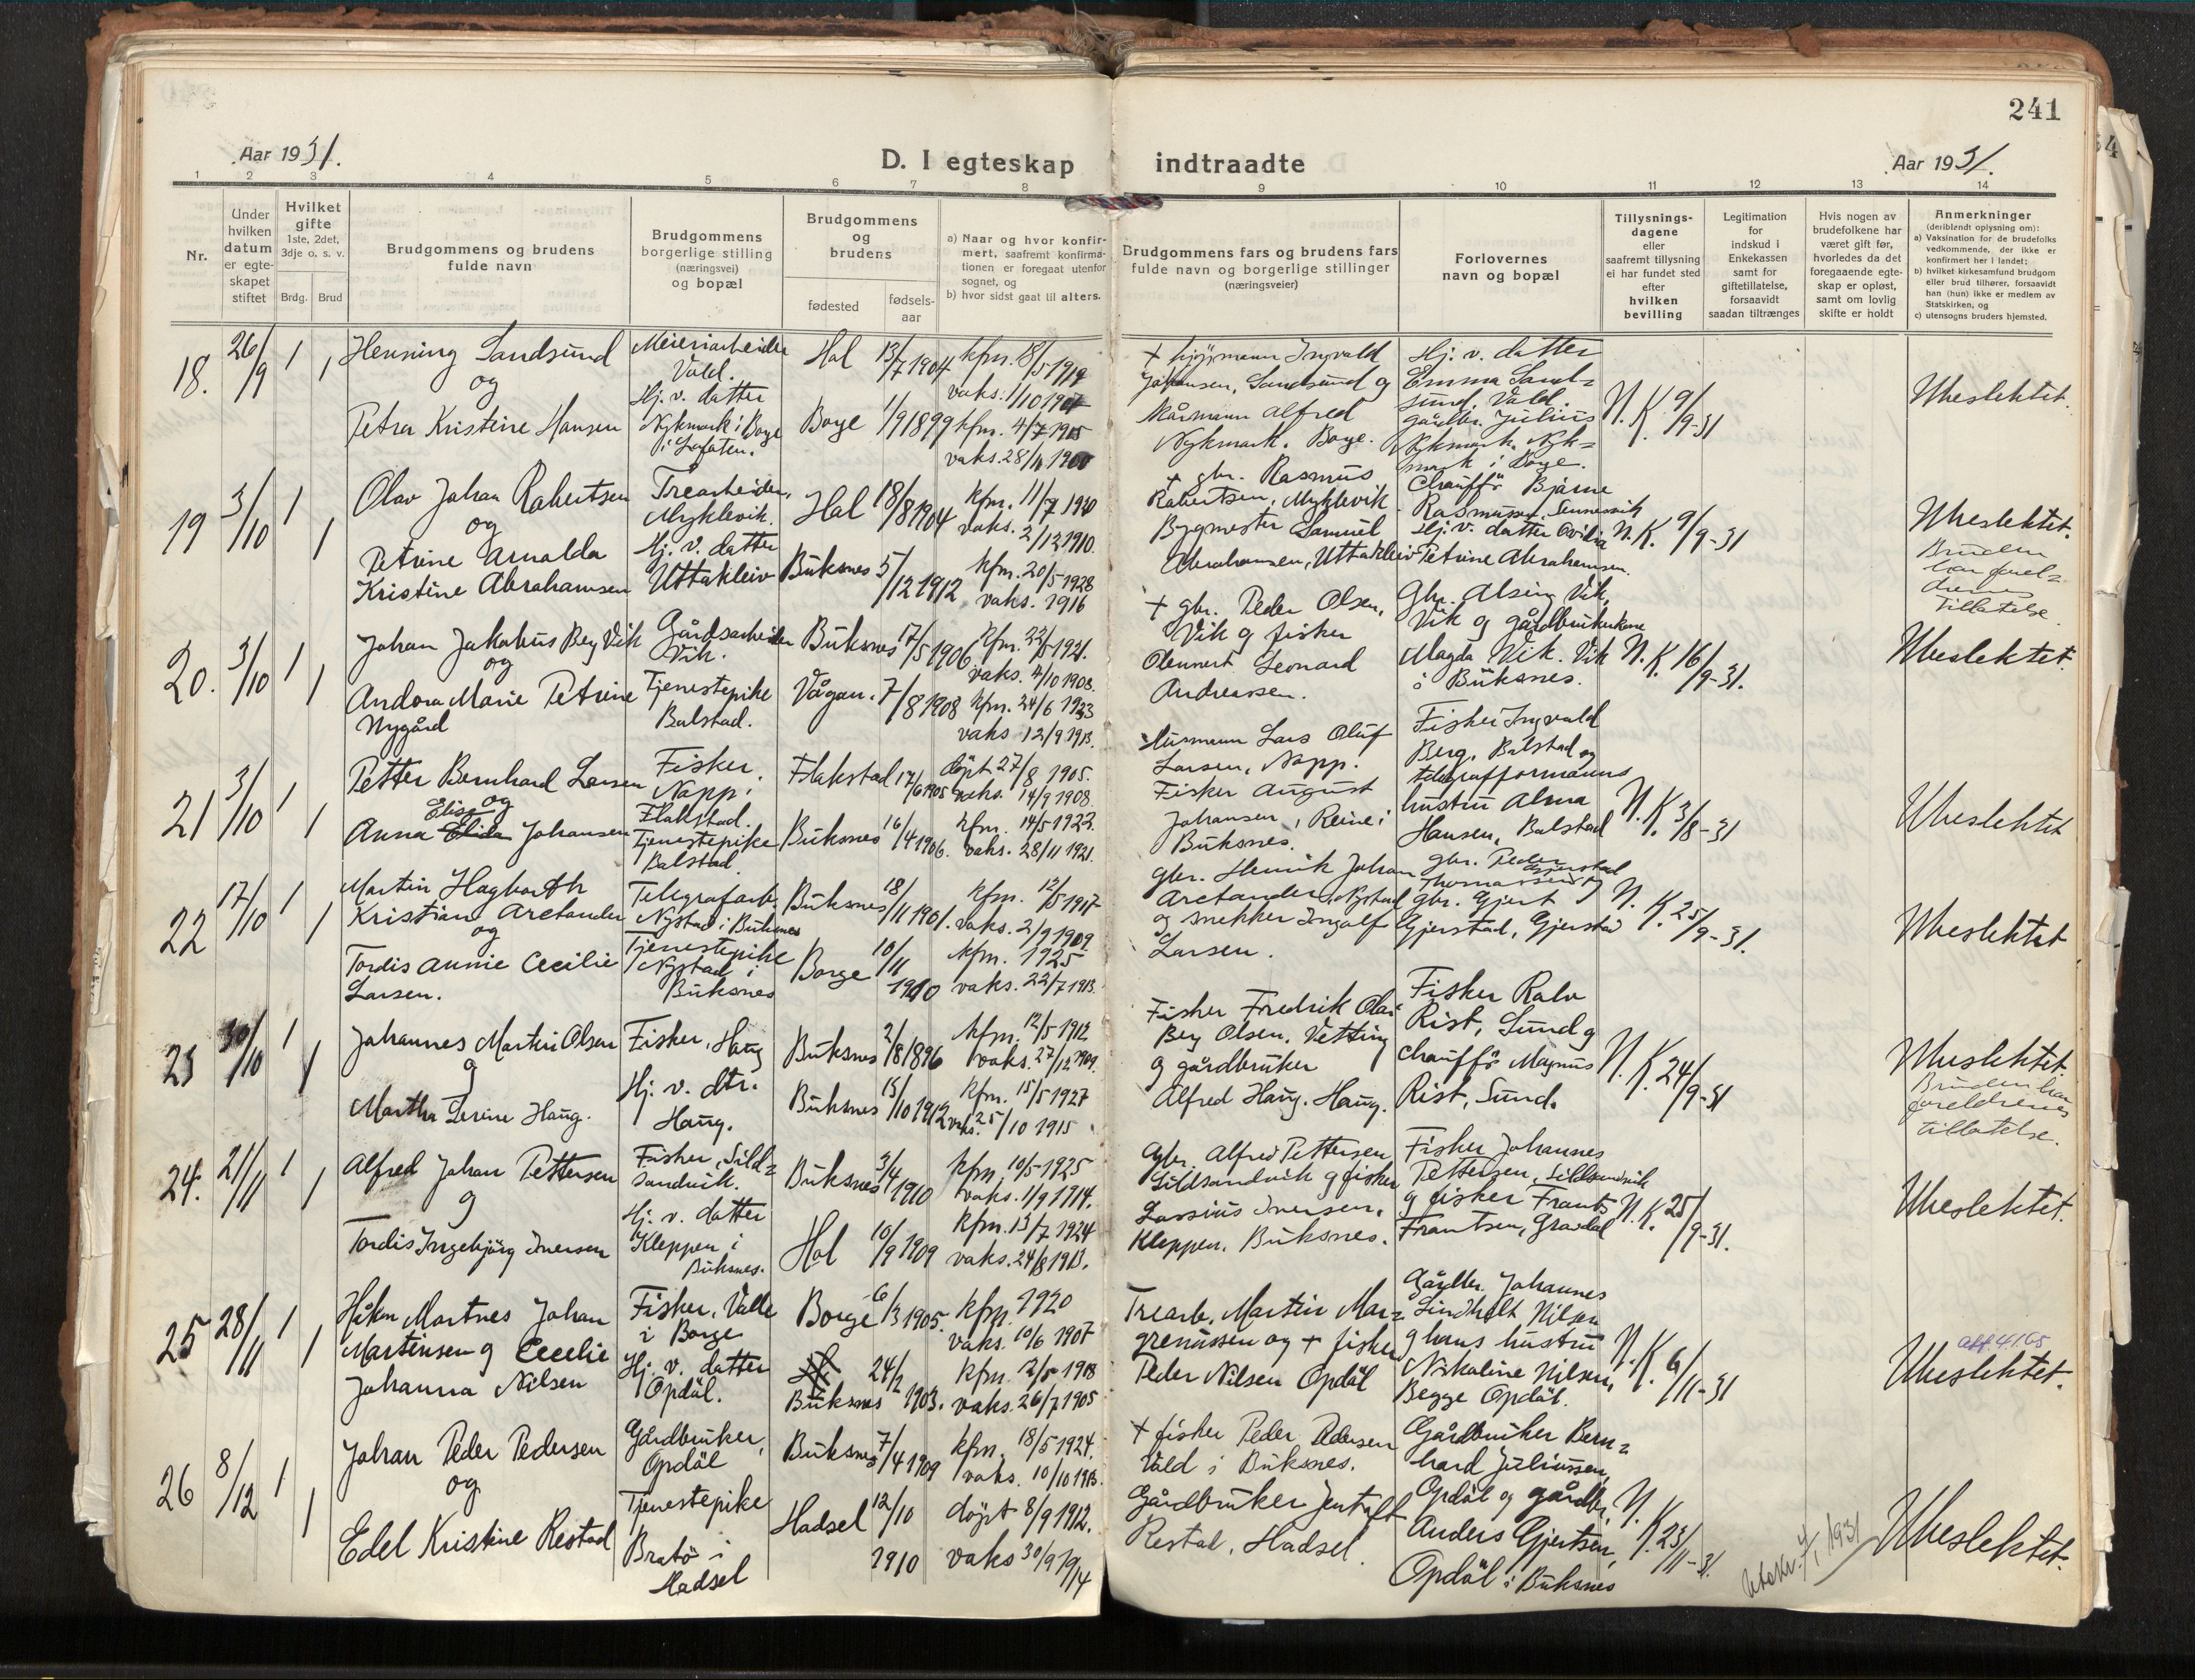 241
Aar 1931.
D. I egteskap indtraadte
Aar 1931.
1 2 3 4 5 6 7 8 9 10 11 12 13 14
Nr.
Under hvilken datum er egteskapet stiftet
Hvilket gifte 1ste, 2det, 3dje o. s. v.
Brdg. Brud
Brudgommens og brudens fulde navn
Brudgommens borgerlige stilling (næringsvei) og bopæl
Brudgommens og brudens
fødested
fødsels-aar
a) Naar og hvor konfirmert, saafremt konfirmationen er foregaat utenfor sognet, og
b) hvor sidst gaat til alters.
Brudgommens fars og brudens fars fulde navn og borgerlige stillinger (næringsveier)
Forlovernes navn og bopæl
Tillysningsdagene eller saafremt tillysning ei har fundet sted efter hvilken bevilling
Legitimation for indskud i Enkekassen samt for giftetillatelse, forsaavidt saadan tiltrænges
Hvis nogen av brudefolkene har været gift før, hvorledes da det foregaaende egteskap er opløst, samt om lovlig skifte er holdt
Anmerkninger (deriblandt oplysning om):
a) Vaksination for de brudefolks vedkommende, der ikke er konfirmert her i landet;
b) hvilket kirkesamfund brudgom eller brud tilhører, forsaavidt han (hun) ikke er medlem av Statskirken, og
c) utensogns bruders hjemsted.
18. 26/9 1 1
Henning Sandsund
og
Petra Kristine Hansen
Meieriarbeider
Vold.
Hj. v. datter
Nykmark i Borge
i Lofoten.
Hol 13/7 1904 kfm. 18/5 1919
vaks. 1/10 1907
Borge 1/9 1899 kfm. 4/7 1915
vaks. 28/11 1900
Ingvald
Johansen, Sandsund og
Alfred
Nykmark. Borge.
Hj. v. datter
Emma Sand=
sund. Vold.
gårdbr. Julius
Nykmark. Nyk=
mark i Borge.
N. K. 9/9-31
Ubeslektet.
19 3/10 1 1
Olav Johan Robertsen
og
Petrine Arnalda
Kristine Abrahamsen
Trearbeider,
Myklevik.
Hj. v. datter
Uttakleiv
Hol 18/8 1904
kfm. 11/7 1920
vaks. 2/12 1910.
Buksnes 5/12 1912
kfm. 20/5 1928
vaks. 1916
+ gbr. Rasmus
Robertsen, Myklevik
Bygmester Samuel
Abrahamsen, Uttakleiv
Chauffør Bjarne
Rasmussen,
Hj. v. datter
Petrine Abrahamsen.
N. K. 9/9-31
Ubeslektet.
Bruden
har forel=
drenes
tillatelse.
20. 3/10 1 1
Johan Jakobus Berg Vik
og
Andora Marie Petrine
Nygård
Gårdsarbeider
Vik.
Tjenestepike
Balstad.
Buksnes 17/5 1906 kfm. 22/5 1921.
vaks. 4/10 1908.
Vågan. 7/8 1908 kfm. 24/6 1923
vaks 12/9 1913.
+ gbr. Peder Olsen,
Vik og fisker
Leonard
Andreassen.
Gbr. Alsing Vik,
Vik og gårdbrukerkone
Magda Vik. Vik
i Buksnes.
N. K. 16/9-31.
Ubeslektet.
21 3/10 1 1
Petter Bernhard Larsen
og
Elise
Anna Elida Johansen
Fisker.
Napp i
Flakstad.
Tjenestepike
Balstad.
Flakstad 17/6 1905
døpt 27/8 1905.
vaks. 14/9 1908.
Buksnes 16/4 1906.
kfm. 14/5 1922.
vaks. 28/11 1921.
Lars Oluf
Larsen, Napp.
Fisker August
Johansen, Reine i
Buksnes.
Fisker Ingvald
Berg, Balstad og
telegrafformanns
hustru Alma
Hansen, Balstad
N. K. 3/8-31
Ubeslektet
22 17/10 1 1
Martin Hagbarth
Kristian Arctander
og
Tordis Annie Cecilie
Larsen.
Telegrafarb.
Nystad i Buksnes
Tjenestepike
Nystad i
Buksnes
Buksnes 18/11 1901.
kfm. 12/5 1917
vaks. 2/9 1909.
Borge 10/11 1910
kfm. 1925
vaks. 22/7 1913.
gbr. Henrik Johan
Arctander, Nystad
og snekker Ingolf
Larsen.
gbr. Peder
Thomassen, Gjerstad
og gbr. Gjert
Gjerstad, Gjerstad
N. K. 25/9-31.
Ubeslektet
23 30/10 1 1
Johannes Martin Olsen
og
Martha Serine Haug.
Fisker, Haug
Hj. v. dtr.
Haug.
Buksnes 2/8 1896
kfm. 12/5 1912
vaks. 27/12 1909.
Buksnes 15/10 1912
kfm. 15/5 1927
vaks. 25/10 1915
Fisker Fredrik Olai
Berg Olsen, Vetting
og gårdbruker
Alfred Haug. Haug.
Fisker Ralv
Rist, Sund og
chauffør Magnus
Rist, Sund.
N. K. 24/9-31
Ubeslektet.
Bruden har
foreldrenes
tillatelse.
24. 21/11 1 1
Alfred Johan Pettersen
og
Tordis Ingebjørg Iversen
Fisker, Sild=
sandvik.
Hj. v. datter
Kleppen i
Buksnes.
Buksnes 3/4 1910
kfm. 10/5-1925
vaks. 1/9 1914.
Hol 10/9 1909
kfm. 13/7 1924
vaks. 24/8 1913.
Gbr. Alfred Pettersen
Sildsandvik og fisker
Lassius Iversen,
Kleppen, Buksnes.
Fisker Johannes
Pettersen, Sildsandvik
og fisker Frants
Frantsen, Gravdal
N. K. 25/9-31.
Ubeslektet.
25 28/11 1 1
Håkon Martnes Johan
Martinsen og Cecelie
Johanna Nilsen
Fisker, Valle
i Borge
Hj. v. datter
Opdål.
Borge 6/3 1905.
kfm. 1920
vaks. 10/6 1907
Buksnes 24/2 1903.
kfm. 12/5 1918
vaks. 26/7 1905
Trearb. Martin Mar=
grenussen og + fisker
Peder Nilsen Opdål
Gårdbr. Johannes
Lindholt Nilsen
og hans hustru
Nikoline Nilsen,
Begge Opdål.
N. K. 6/11-31
att. 4.1.65
Ubeslektet.
26 8/12 1 1
Johan Peder Pedersen
og
Edel Kristine Restad
Gårdbruker,
Opdål
Tjenestepike
Bratø i
Hadsel
Buksnes 7/4 1909
kfm. 18/5 1924.
vaks. 10/10 1913.
Hadsel 12/10 1910
døpt 8/9 1912.
vaks 30/9 1914
+ fisker Peder Pedersen
Vold i Buksnes.
Gårdbruker Jentoft
Restad, Hadsel.
Gårdbruker Bern=
hard Juliussen,
Opdål og gårdbr.
Anders Gjertsen,
Opdål i Buksnes
N. K. 23/11-31.
Utskr. 4/1 1931
Ubeslektet.